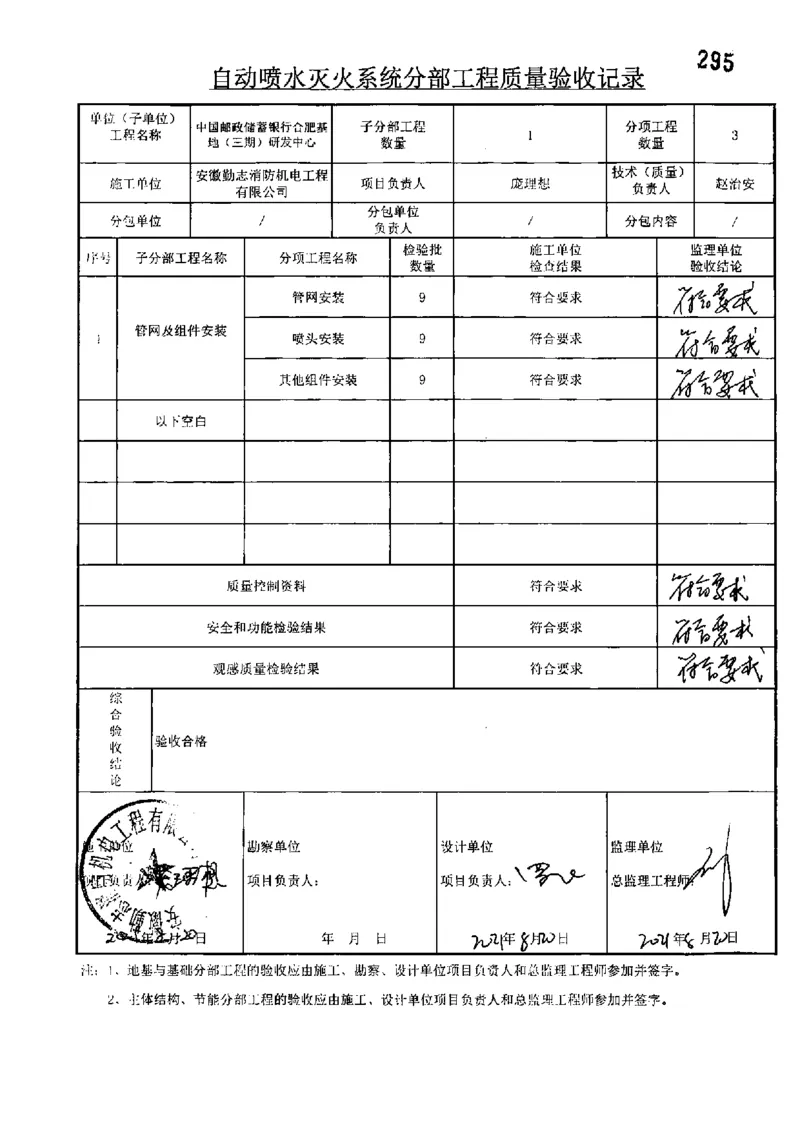 295
自动喷水灭火系统分部工程质量验收记录
单位（子单位）
工程名称
中国邮政储蓄银行合肥基
地（三期）研发中心
子分部工程
数量
1
分项工程
数量
3
施工单位
安徽勤志消防机电工程
有限公司
项目负责人
庞理想
技术（质量）
负责人
赵治安
分包单位
/
分包单位
负责人
/
分包内容
/
序号
子分部工程名称
分项工程名称
检验批
数量
施工单位
检查结果
监理单位
验收结论
1
管网及组件安装
管网安装
9
符合要求
符合要求
喷头安装
9
符合要求
符合要求
其他组件安装
9
符合要求
符合要求
以下空白
质量控制资料
符合要求
符合要求
安全和功能检验结果
符合要求
符合要求
观感质量检验结果
符合要求
符合要求
综
合
验
收
结
论
验收合格
施工单位
项目负责人：
年8月20日
勘察单位
项目负责人：
年 月 日
设计单位
项目负责人：
2021年8月20日
监理单位
总监理工程师：
2021年8月20日
注：1、地基与基础分部工程的验收应由施工、勘察、设计单位项目负责人和总监理工程师参加并签字。
2、主体结构、节能分部工程的验收应由施工、设计单位项目负责人和总监理工程师参加并签字。